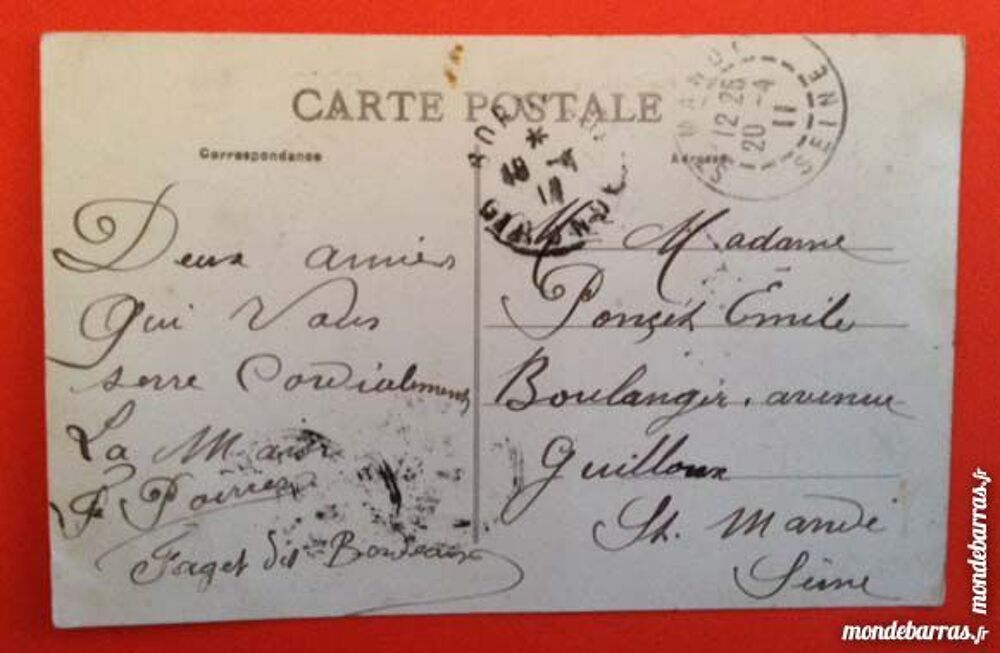 CARTE POSTALE
Correspondance
Adresse
ST MANDÉ
12 25
20 -4
11
SEINE
GIRONDE
Deux amies
Qui Vous
serre Cordialement
La Main
Poirier
Forget dit Bordeaux
M Madame
Ponçet Emile
Boulanger. avenue
Guilloux
St. Mandé
Seine
mondebarras.fr
mondebarras.fr